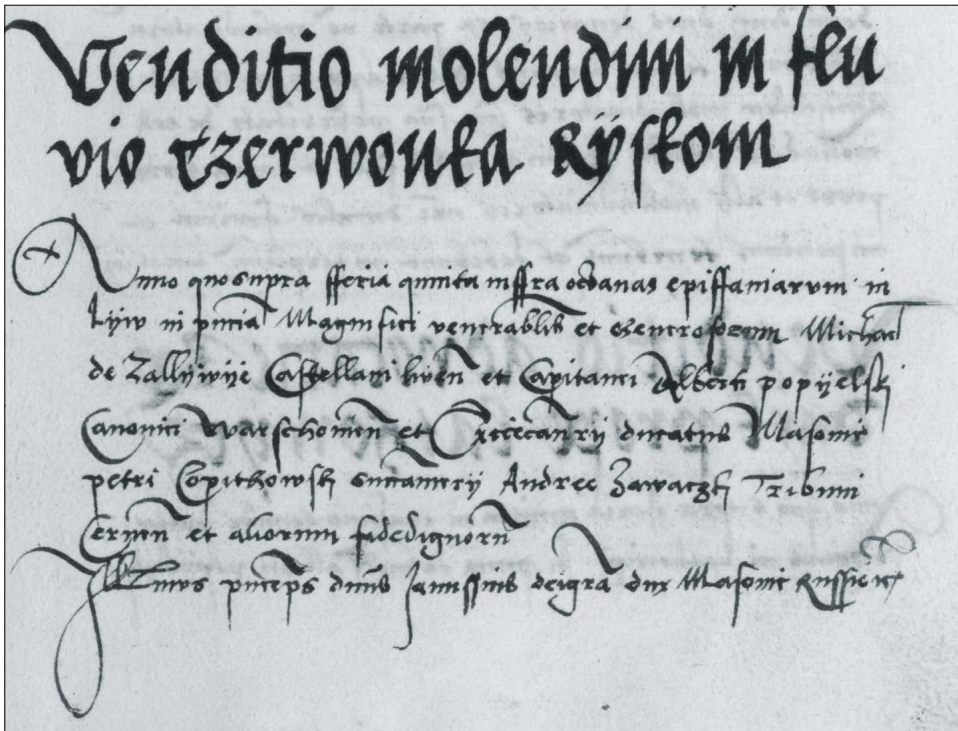 Venditio molendini in flu
vio Czerwonka Rÿskom
Anno quosupra fferia quinta inffra octavas epiffaniarum in
Lyw in pñcia Magnifici venerabilis et generosorum
de Zallÿwÿe Castellani liven̄ et Capitanei Alberti popÿelskj
Canonici Warschovien̄ et ducatus Masovie
petri Copithowskj succamerÿ Andree Zawaczkj Tribuni
Cernen̄ et aliorum fidedignorū
Illmus pnceps dnus Janussius deigrā dux Masovie Russie